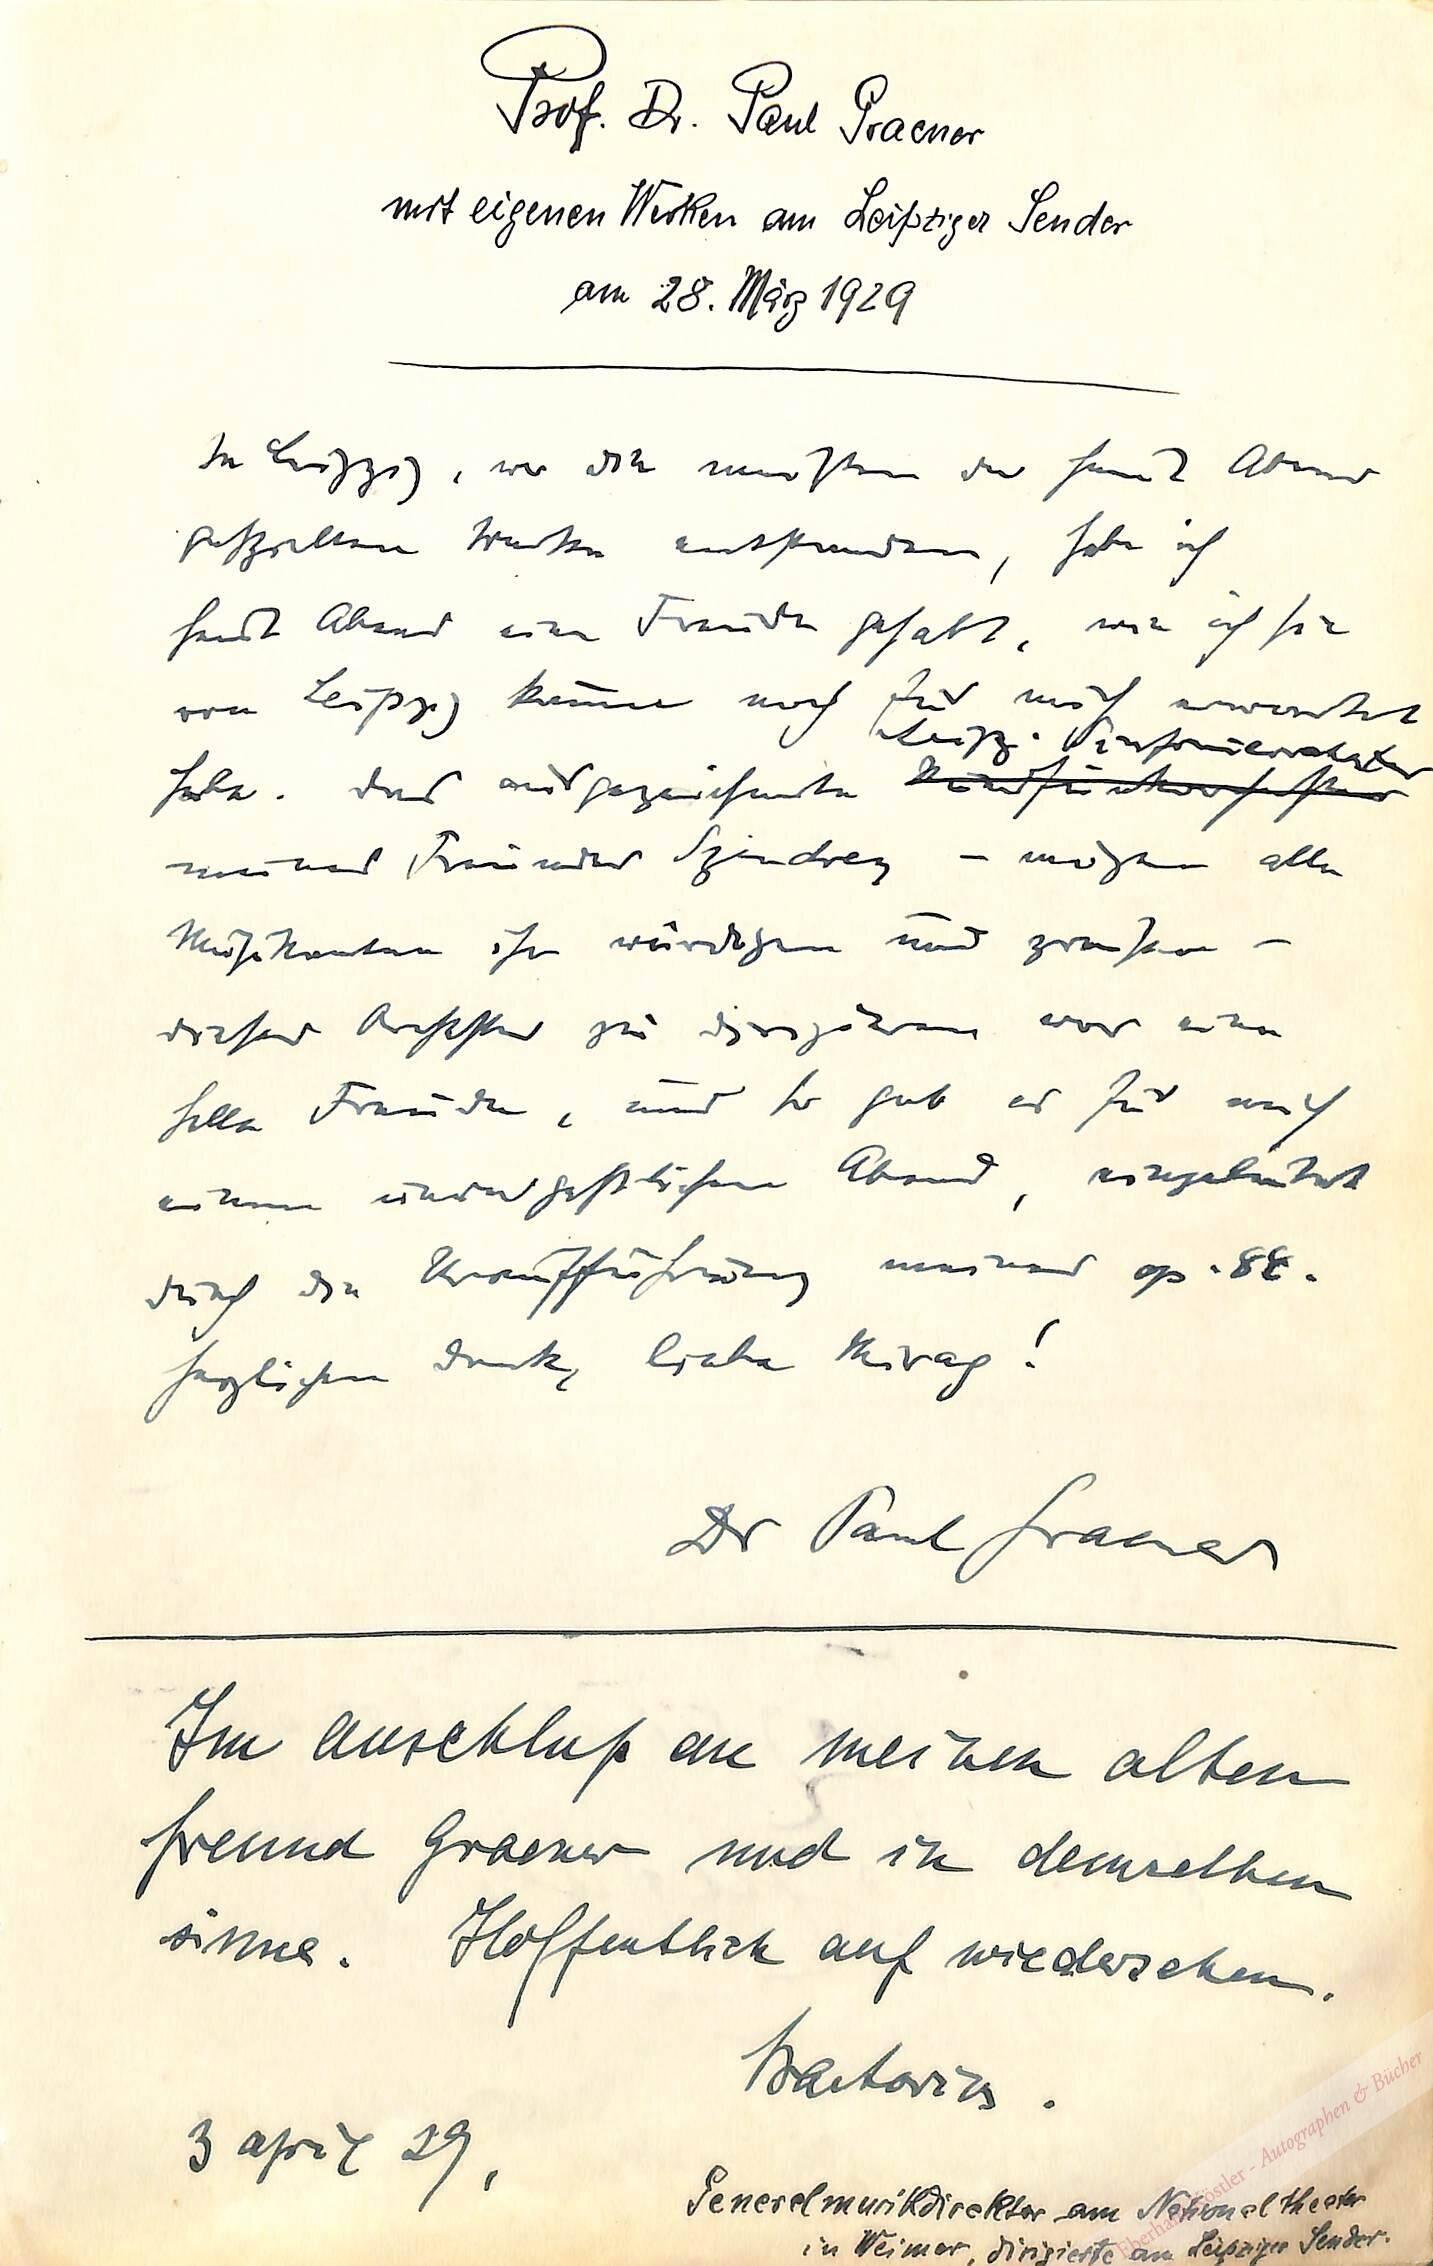 Prof. Dr. Paul Graener
mit eigenen Werken am Leipziger Sender
am 28. März 1929
In Leipzig, wo die meisten der heut Abend
gespielten Werke entstanden, habe ich
heut Abend eine Freude gehabt, wie ich sie
von Leipzig kaum noch für mich erwartet
Leipz. Sinfonieorchester
habe. Das ausgezeichnete Rundfunkorchester
meines Freundes Szendrey – mögen alle
Musikanten ihn würdigen und preisen –
dieses Orchester zu dirigieren war eine
helle Freude, und so gab es für mich
einen unvergeßlichen Abend, eingeleitet
durch die Uraufführung meines op. 88.
Herzlichen Dank, liebe Mirag!
Dr Paul Graener
Im anschluß an meinen alten
freund Graener und in demselben
sinne. Hoffentlich auf wiedersehen.
Praetorius.
3 april 29,
Generalmusikdirektor am Nationaltheater
in Weimar, dirigierte am Leipziger Sender.
Eberhard Köstler - Autographen & Bücher